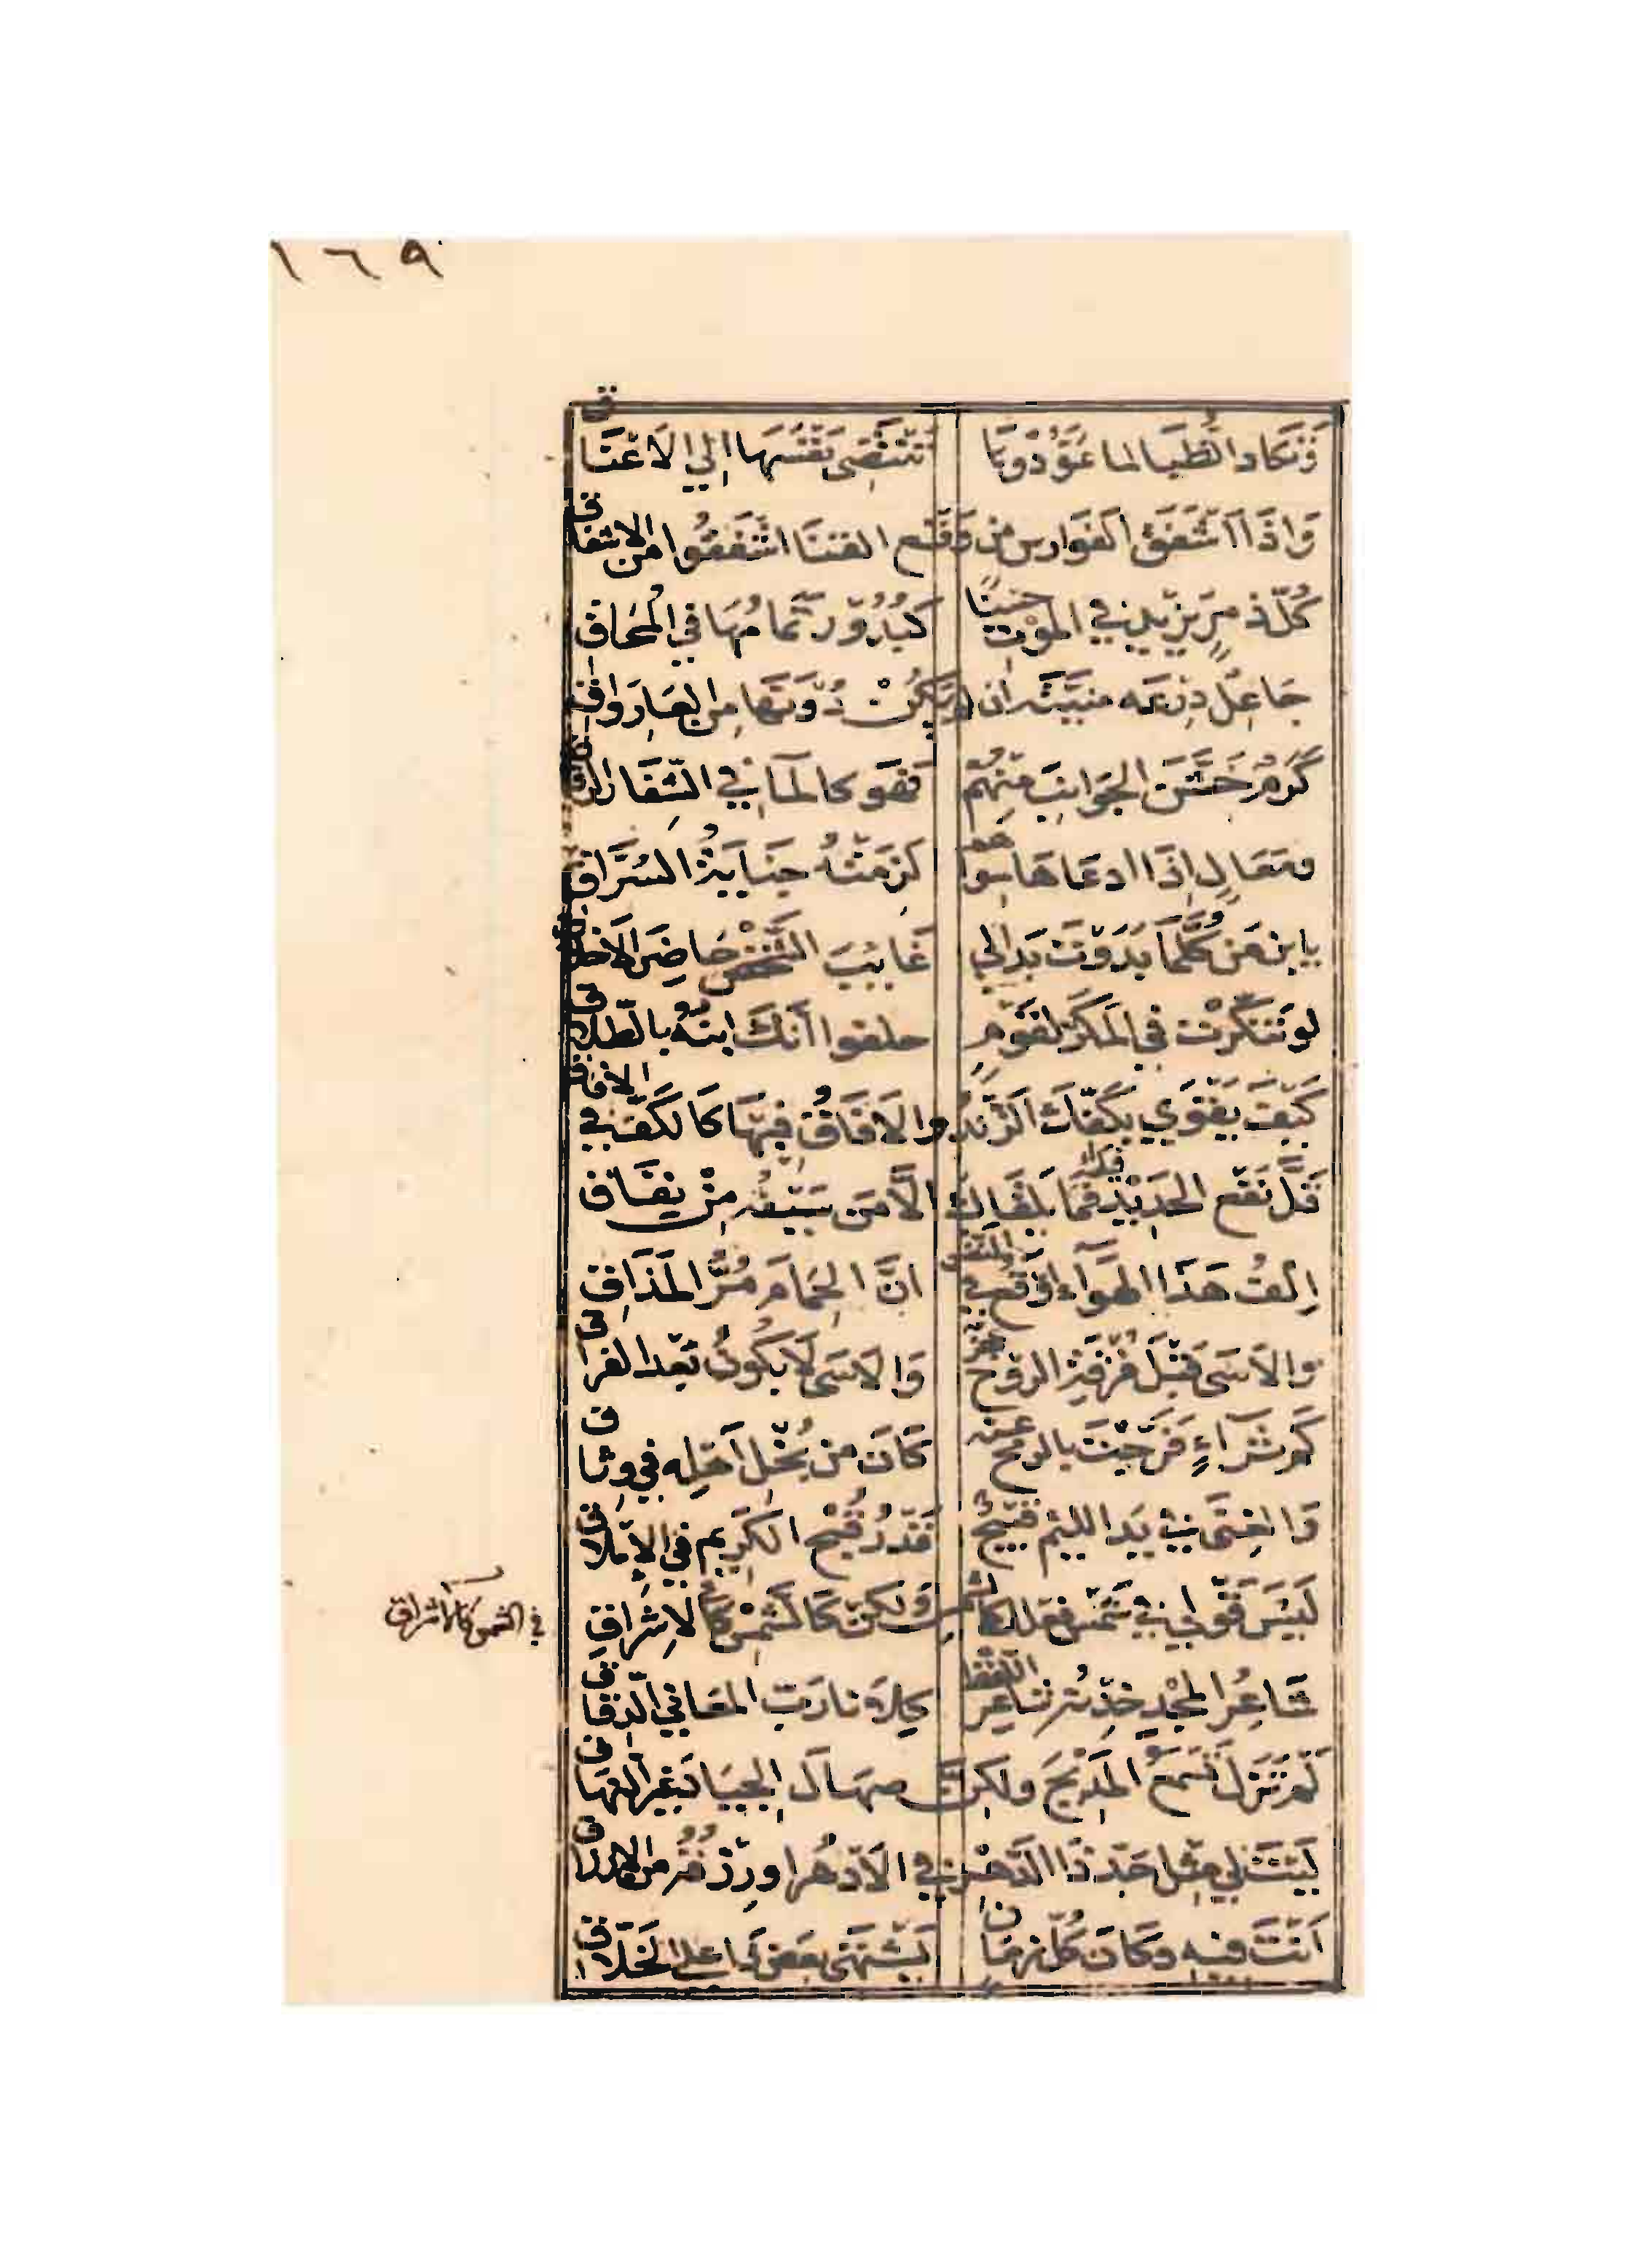 ١٦٩
وَتَكادُ الظُّبَا لما عَوَّدُوهَا تَنْتَضِى نَفْسَهَا إلي الاَعْنَاق
وَاِذَا اَشْفَقَ الفَوَارِسُ مِن وَقْعِ القَنَا اشْفَقُوا مِنَ الاشفاق
كُلّ ذِمرٍ يَزِيْدُ فِي المَوْتِ حُسْنًا كَبُدُوْرٍ تَمَامُهَا فِي الْمُحَاقِ
جَاعِلٌ دِرْعَه مَنِيَّتَه ان لم يَكُنْ دُوْنَهَا مِنَ العَارِ وَاقِ
كَرَمٌ خَشَّنَ الجَوَانِبَ مِنْهُمْ فَهْوَ كالمَآءِ في الشِّفَارِ الرقاق
ومَعَالٍ اِذَا ادعَاهَا سِوَاهم لَزِمَتْهُ جِنَايَةُ السُّرَّاقِ
يا ابن مَن كُلَّمَا بَدَوْتَ بَدَا لي غَائِبَ الشَّخْصِ حَاضِرَ الاَخلاق
لو تَنَكَّرْتَ في المَكَرِّ لِقَوْمٍ حلفوا أَنَّكَ ابنُهُ بالطّلاق
كَيْفَ يَقْوَي بِكَفِّكَ الزَّنْدُ والاَفَاقُ فِيْهَا كَالكَفِّ في الافاق
قَلَّ نَفْعُ الحَدِيْدِ فيك فَمَا يَلقَاكَ الاَّ مَن سَيْفُه مِنْ نِفَاق
اِلفُ هَذَا الهَوَاءِ اَوْقَعَ في الانفس انَّ الحِمَامَ مُرُّ المَذَاقِ
والاَسَى قَبْلَ فُرْقَةِ الروْحِ عجز وَالاَسَى لَا يَكُونُ بَعْدَ الفراق
كَم ثَرَاءٍ فَرَّجْتَ بالرمح عنه كَانَ من بُخْلِ اَهْلِه في وِثَاق
وَالغِنَى في يَدِ اللئيم قَبِيْحٌ قَدْرَ قُبْحِ الكَرِيمِ في الإمْلاق
لَيْسَ قَوْلي في شَمْسِ فعلك كالشمس ولَكن كَالشَّمْس كَالاِشْرَاقِ
في الشمس كالاشراق
شَاعِرُ المجْدِ خِدْنُه شَاعِرُ اللفظ كِلاَنا رَبُّ المعَاني الدِّقَاق
لَم تَزَلْ تَسْمَعُ المَدِيْحَ ولكِنَّ صهَالَ الجِيَادِ غَيْرُ النهَاق
لَيْتَ لي مِثْلَ جَدِّ ذَا الدَّهْرِ في الاَدْهُرِ او رِزْقُه مِنَ الارزاق
اَنْتَ فيه وكَانَ كُلُّ زمَان يَشْتَهِي بعضَ ذا علي الخَلَّاق